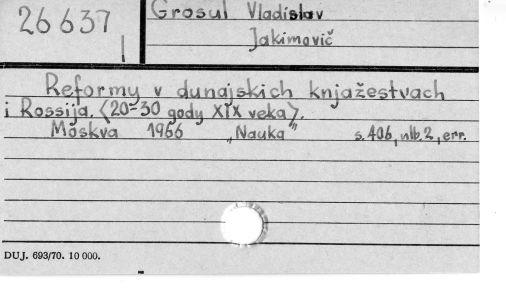 26 637
I
Grosul Vladislav
Jakimovič
Reformy v dunajskich knjažestvach
i Rossija. (20-30 gody XIX veka).
Moskva 1966 „Nauka" s. 406, nlb. 2, err.
DUJ. 693/70. 10 000.